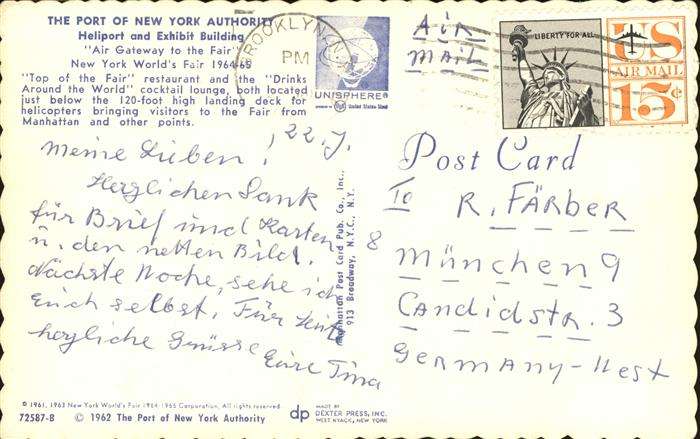 THE PORT OF NEW YORK AUTHORITY
Heliport and Exhibit Building
"Air Gateway to the Fair"
New York World's Fair 1964-65
"Top of the Fair" restaurant and the "Drinks
Around the World" cocktail lounge, both located
just below the 120-foot high landing deck for
helicopters bringing visitors to the Fair from
Manhattan and other points.
BROOKLYN, N.Y.
PM
UNISPHERE®
United States Steel
Air
Mail
LIBERTY FOR ALL
US
AIR MAIL
15¢
22. J.
Meine Lieben!
Herzlichen Dank
für Brief und Karten
u. den netten Bild.
Nächste Woche, sehe ich
Euch selbst. Für heute
herzliche Grüsse
Eure Tina
Manhattan Post Card Pub. Co., Inc.,
913 Broadway, N.Y.C., N.Y.
Post Card
To
R. FÄRBER
8
München 9
Candidstr. 3
Germany-West
© 1961, 1963 New York World's Fair 1964-1965 Corporation. All rights reserved
72587-B © 1962 The Port of New York Authority
dp
MADE BY
DEXTER PRESS, INC.
WEST NYACK, NEW YORK